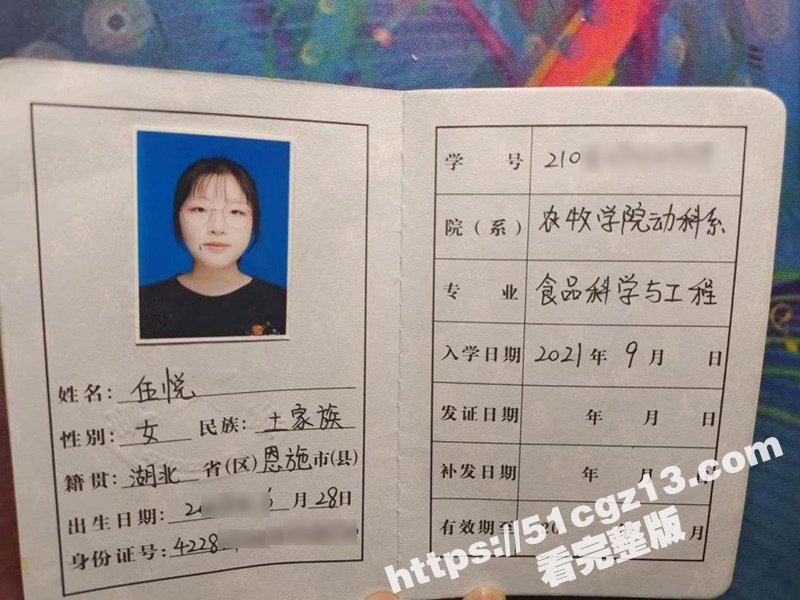 姓名：伍悦
性别：女 民族：土家族
籍贯：湖北省(区)恩施市(县)
出生日期：2 月28日
身份证号：4228
学号 210
院(系) 农牧学院动科系
专业 食品科学与工程
入学日期 2021年9月 日
发证日期 年 月 日
补发日期 年 月 日
有效期至 20 月
https://51cgz13.com
看完整版